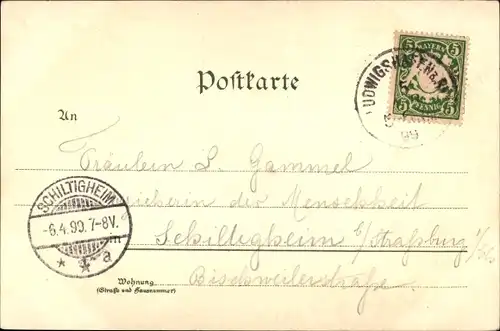 Postkarte
BAYERN
5 5
5 PFENNIG 5
LUDWIGSHAFEN a. RH
99
An
Fräulein L. Gammel
der Menschheit
SCHILTIGHEIM
-6.4.99.7-8V.
* * a
in Schiltigheim b/Straßburg i/Els
Wohnung
(Straße und Hausnummer)
Bischweilerstraße